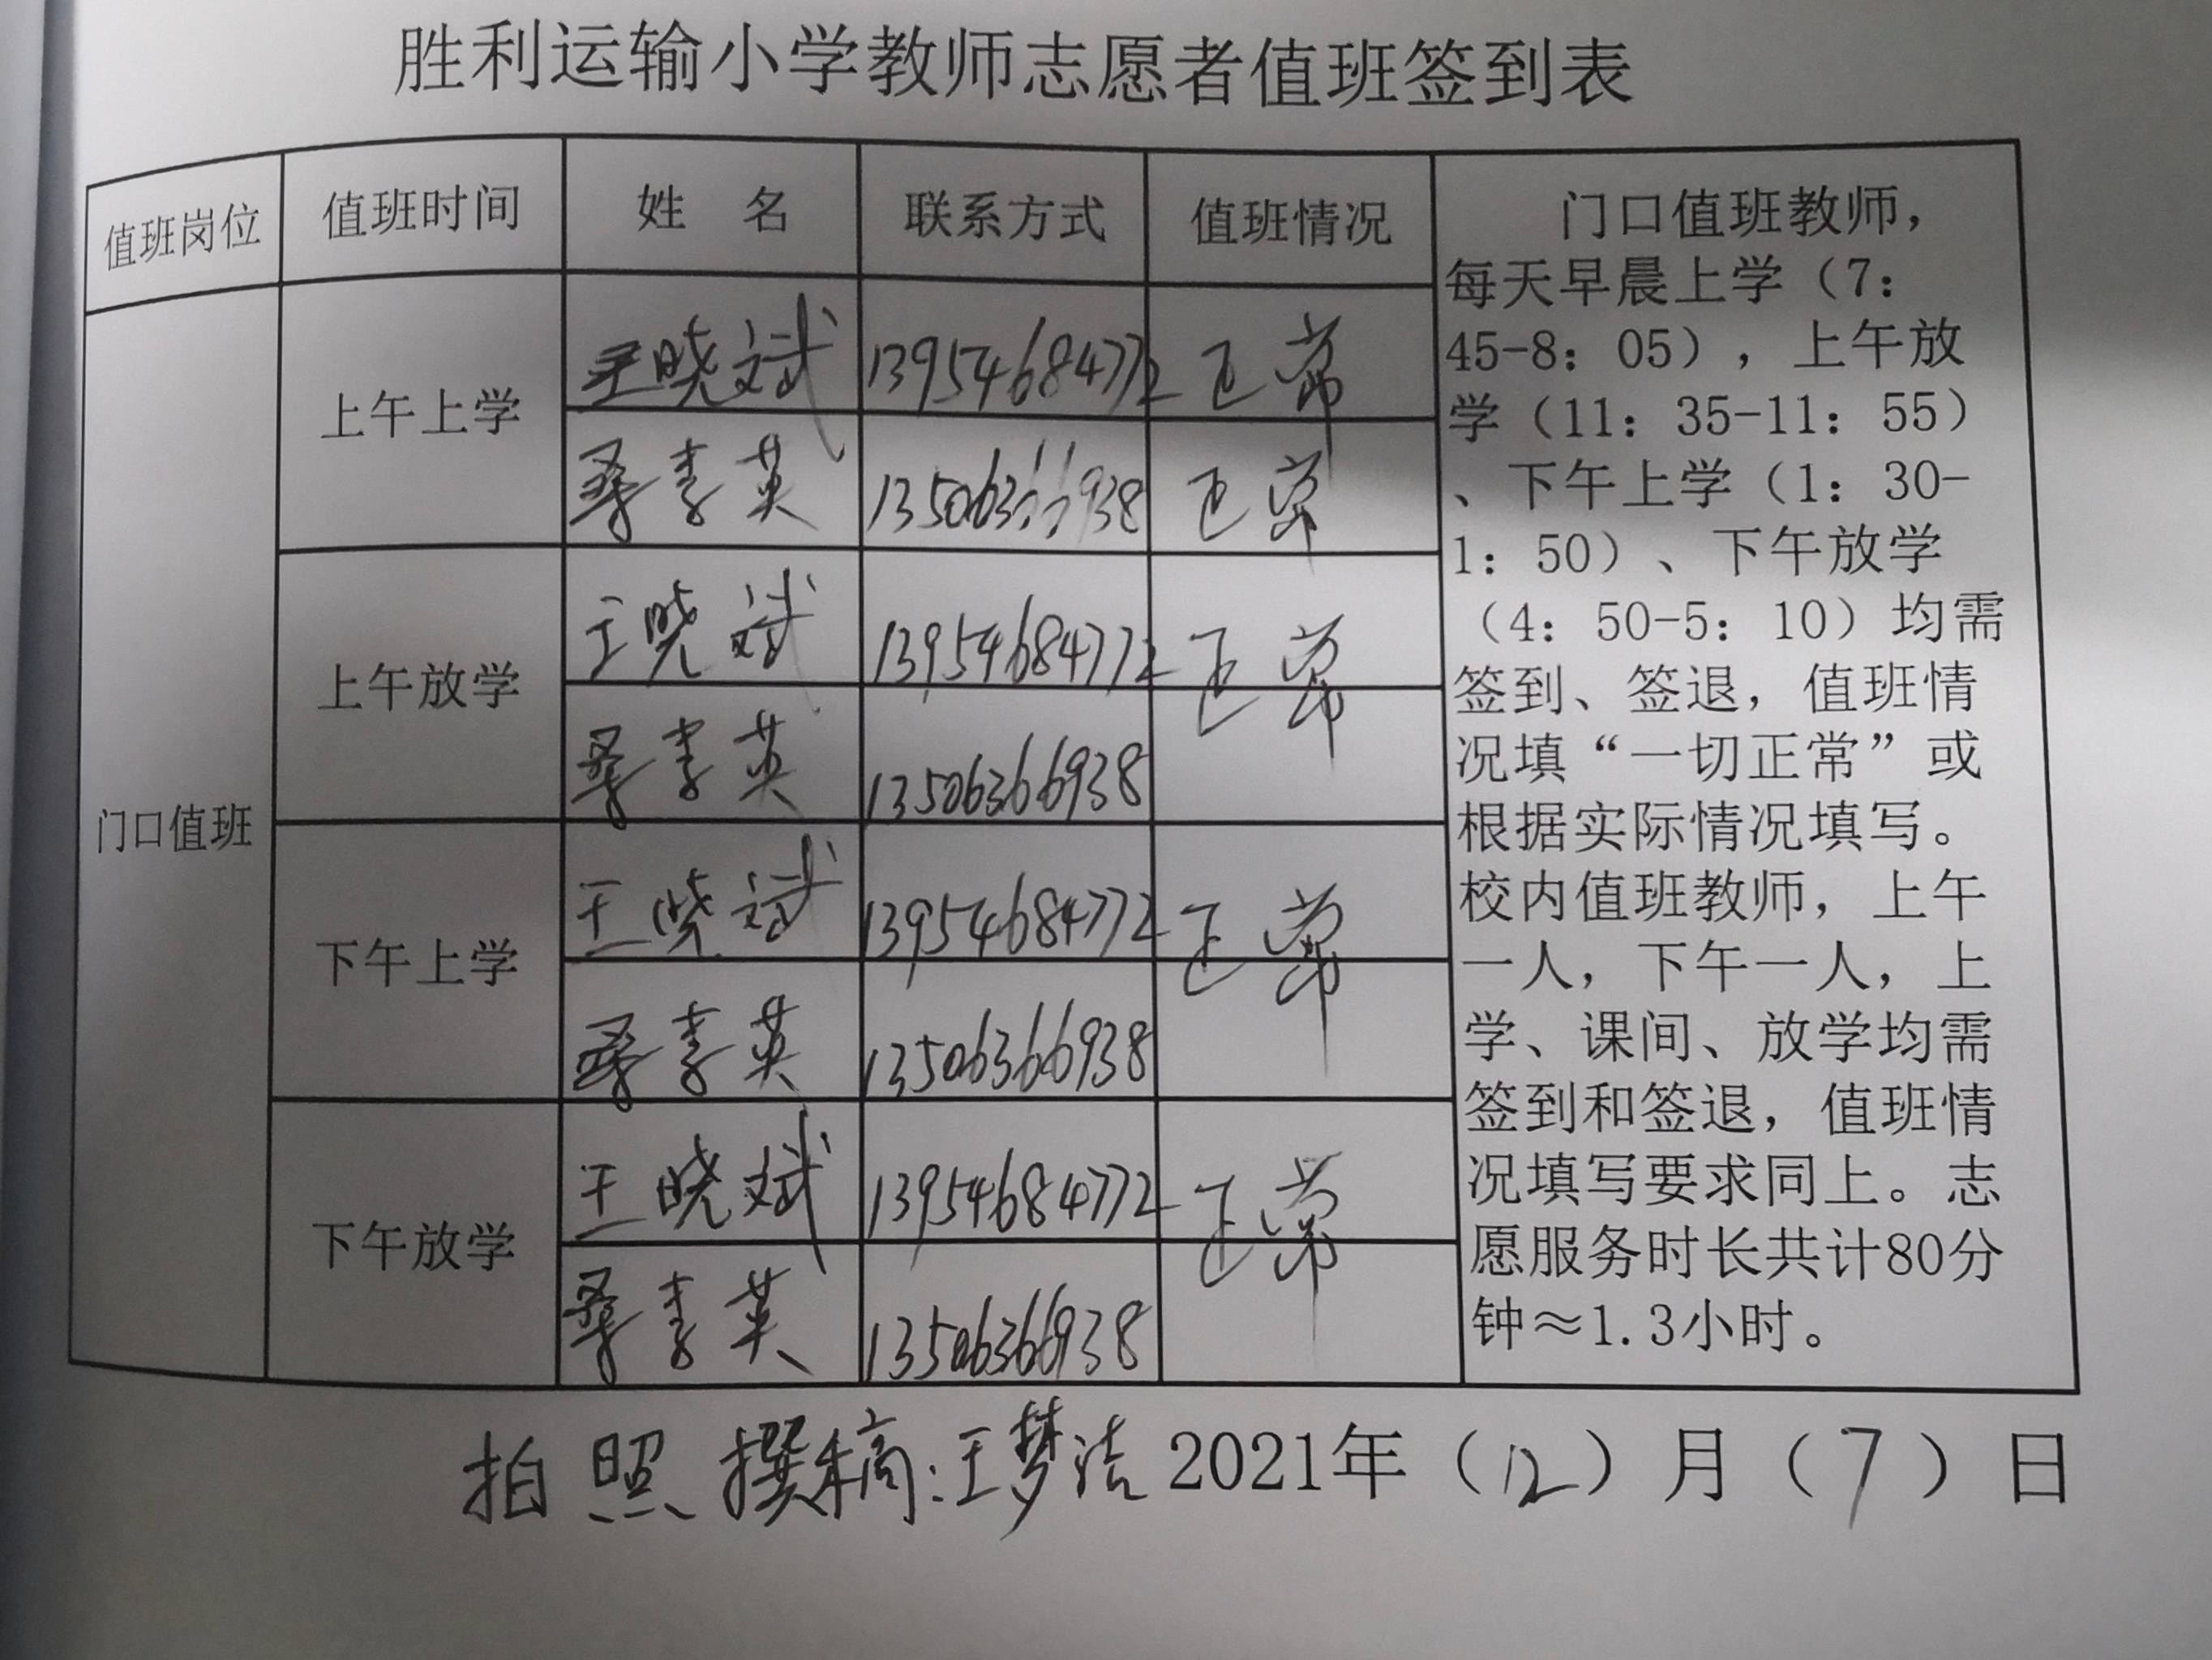 胜利运输小学教师志愿者值班签到表
值班岗位 值班时间 姓 名 联系方式 值班情况
门口值班
上午上学
王晓斌 13954684772 正常
桑素英 13506366938 正常
上午放学
王晓斌 13954684772 正常
桑素英 13506366938
下午上学
王晓斌 13954684772 正常
桑素英 13506366938
下午放学
王晓斌 13954684772 正常
桑素英 13506366938
门口值班教师，
每天早晨上学（7：
45-8：05），上午放
学（11：35-11：55）
、下午上学（1：30-
1：50）、下午放学
（4：50-5：10）均需
签到、签退，值班情
况填“一切正常”或
根据实际情况填写。
校内值班教师，上午
一人，下午一人，上
学、课间、放学均需
签到和签退，值班情
况填写要求同上。志
愿服务时长共计80分
钟≈1.3小时。
拍照 撰稿：王梦洁 2021年（12）月（7）日